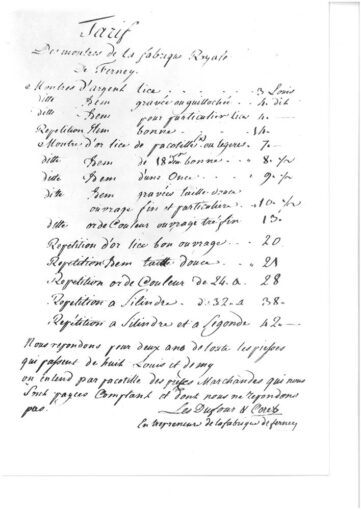 Tarif
Des montres de la fabrique Royale
De Ferney.
Montres d'argent lice - - - 3 Louis
ditte Item gravée ou guillochée - - 4 dit
ditte Item pour particulier lice 4 -
Repetition Item bonne - - - 14 -
Montre d'or lice de pacotelle ou legere - 7 -
ditte Item de 18 bonne - - 8 - 1/2
ditte Item d'une Once - - 9 - 1/2
ditte Item gravées taille douce
ouvrage fin et particuliere - 10 - 1/2
ditte or de Couleur ouvrage tré fin 13 -
Repetition d'or lice bon ouvrage - - 20
Repetition Item taille douce - - 21
Repetition or de Couleur de 24 a 28
Repetition a Silindre - d. 32 a 38 -
Repétition a Silindre et a Segonde 42 -
Nous repondons pour deux ans de toute les piesses
qui passent de huit Louis et demy
on entend par pacotelle des piesses Marchandes qui nous
sont payees Comptant et dont nous ne repondons
pas.
Les Dufour & Ceret
Entrepreneur de la fabrique de ferney